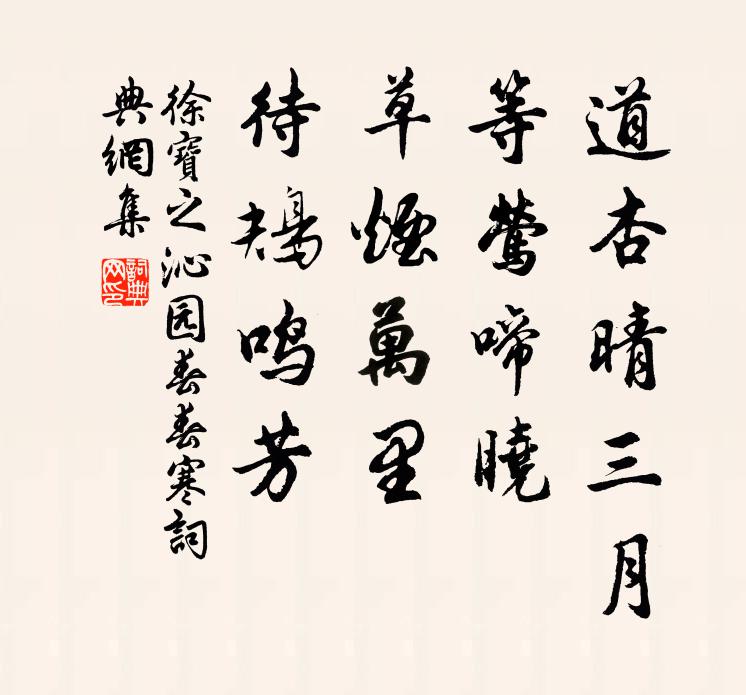 道杏晴三月
等莺啼曉
草煙萬里
待鴂鸣芳
徐寶之沁园春春寒詞
典網集
詞典網印